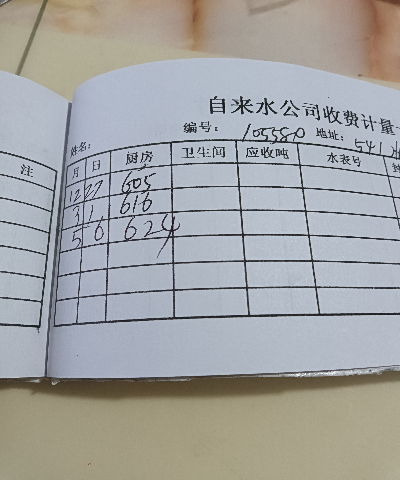 自来水公司收费计量
编号: 105580 地址: 541
姓名:
注
月 日 厨房 卫生间 应收吨 水表号
12 27 605
3 1 616
5 6 624